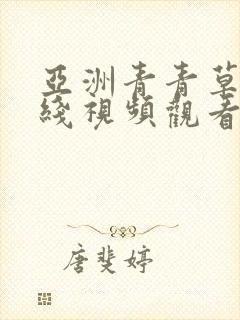 亞洲青青草
綫視頻觀看
唐斐婷